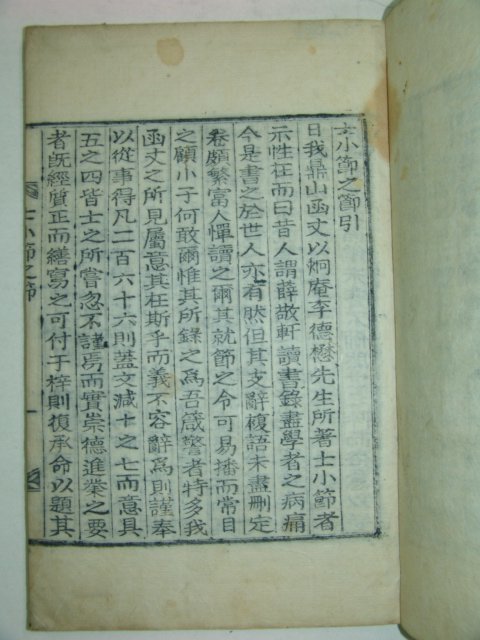 士小節之節引
日我鼎山函丈以炯庵李德懋先生所著士小節者
示性在而曰昔人謂薛敬軒讀書錄盡學者之病痛
今是書之於世人亦有然但其支辭複語未盡刪定
卷頗繁富人憚讀之爾其就節之令可易播而常目
之顧小子何敢爾惟其所錄之爲吾箴警者特多我
函丈之所見屬意其在斯乎而義不容辭焉則謹奉
以從事得凡二百六十六則蓋文減十之七而意具
五之四皆士之所嘗忽不謹焉而實崇德進業之要
者旣經質正而繕寫之可付于梓則復承命以題其
士小節之節